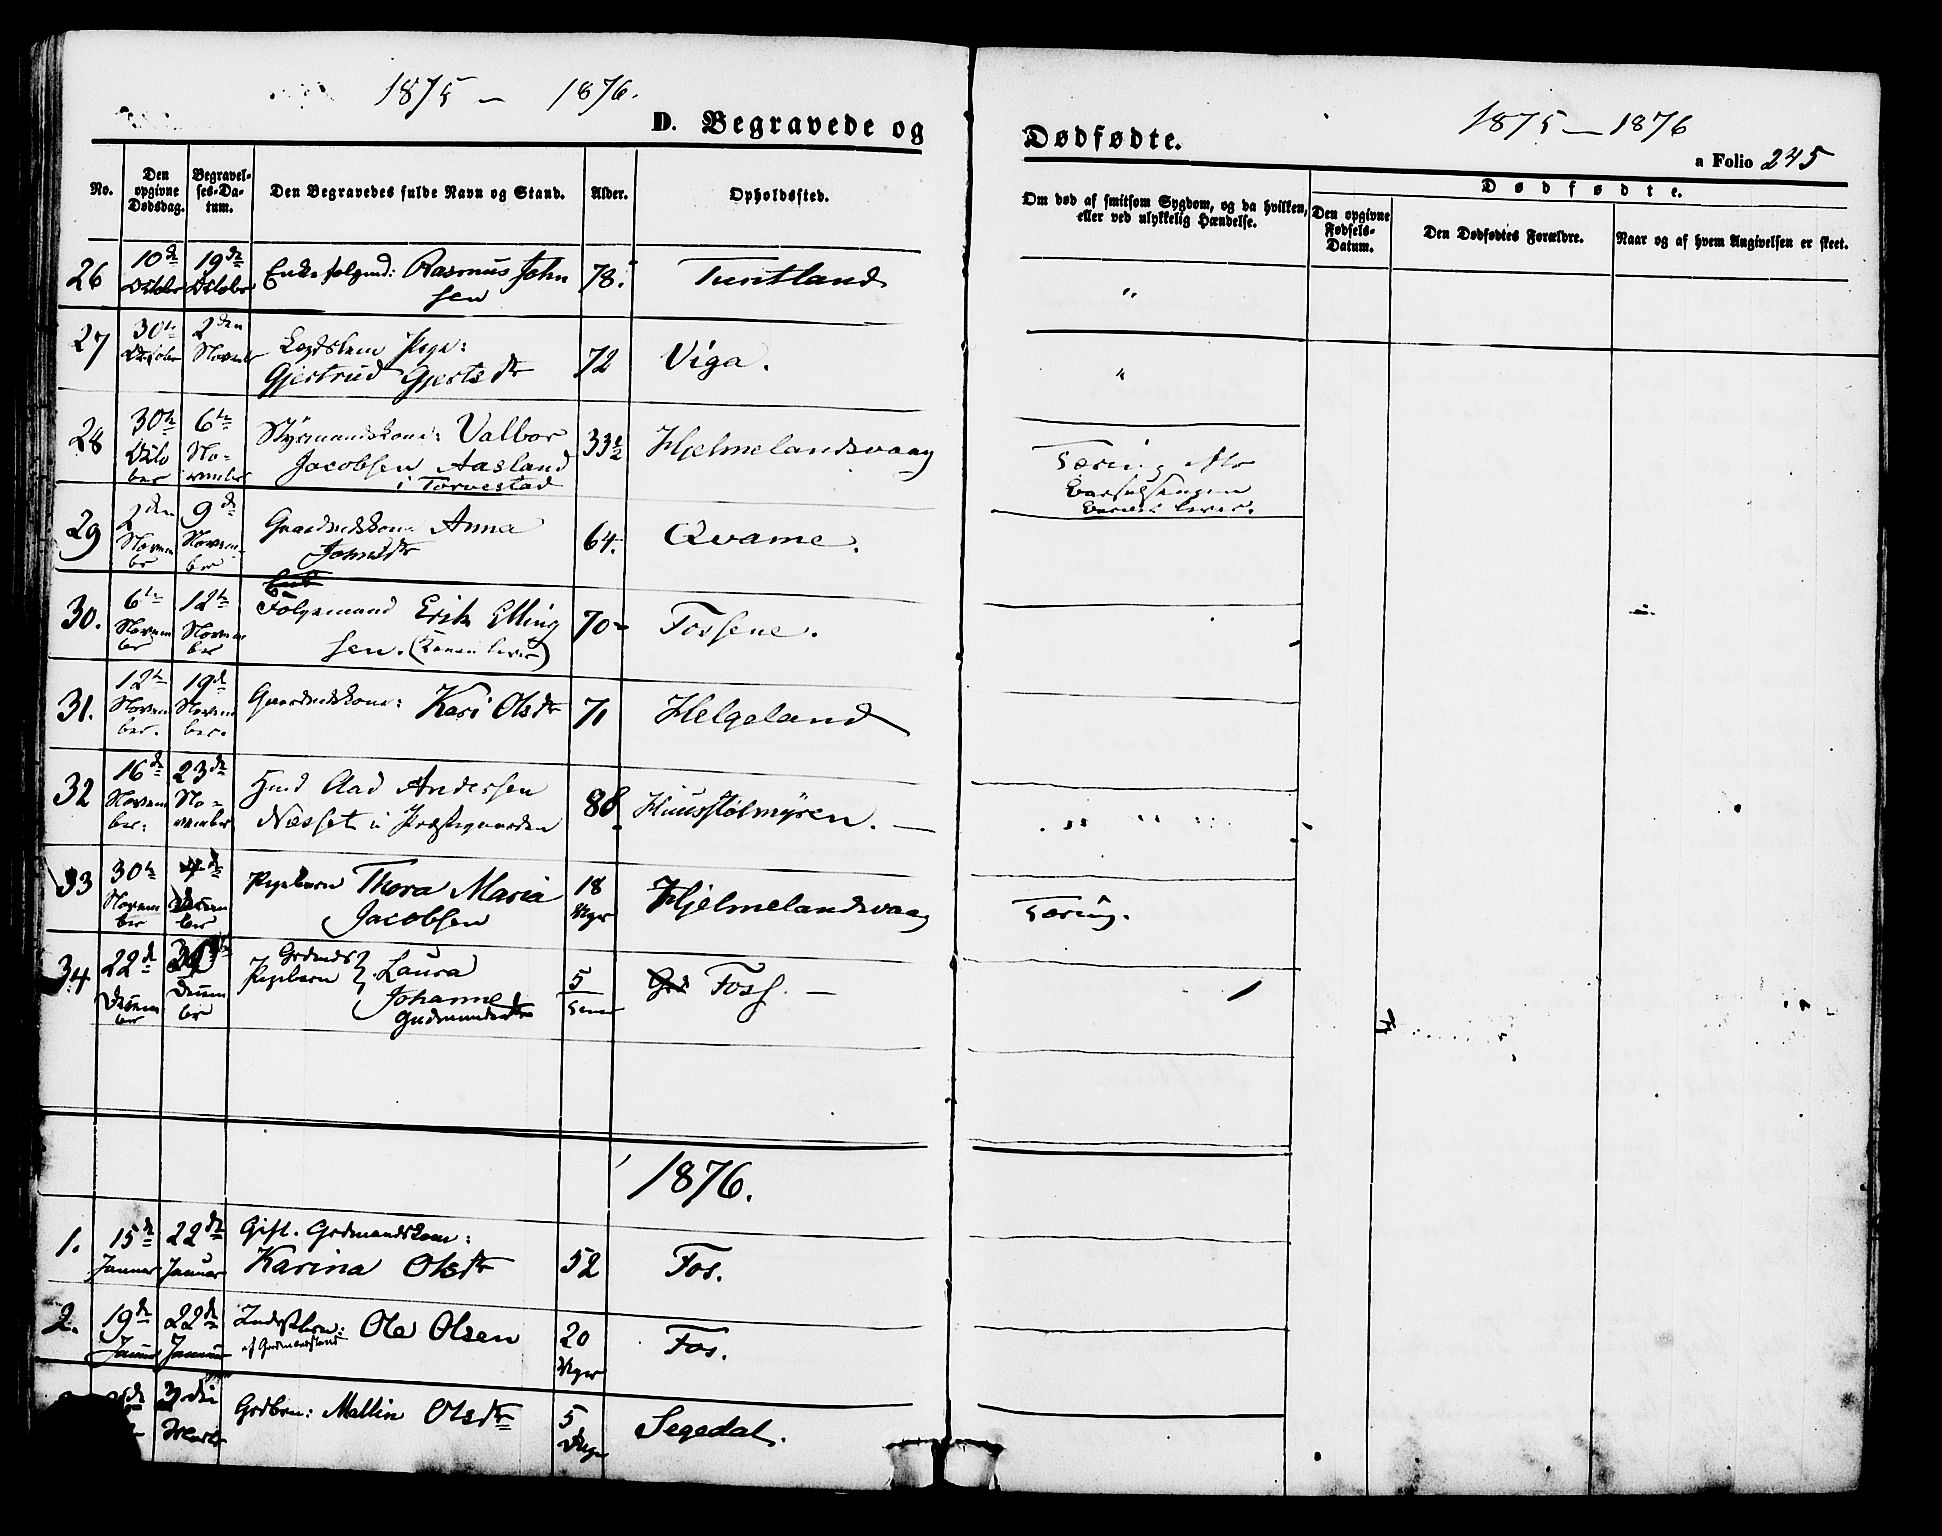 1875 – 1876.
D. Begravede og
Dødfødte.
1875 – 1876
a Folio 245
No.
Den opgivne Dødsdag.
Begravelses-Datum.
Den Begravedes fulde Navn og Stand.
Alder.
Opholdssted.
Om død af smitsom Sygdom, og da hvilken,
eller ved ulykkelig Hændelse.
Dødfødte.
Den opgivne Fødsels-Datum.
Den Dødfødtes Forældre.
Naar og af hvem Angivelsen er skeet.
26 10de October 19de October Rasmus John
sen 78. Tuntland "
27 30te October 2den November Lægdslem Pige:
Gjertrud Gjertsdtr 72 Viga. "
28 30te Octo
ber 6te No-
vember Styrmandskone: Valbor
Jacobsen Aasland
i Torvestad 33½ Hjelmelandsvaag
Tæring
Barselsengen
29 2den Novem
ber 9de Novem-
ber Gaardmdskone Anna
64. Qvame.
30. 6te Novem
ber 12te Novem
ber Følgemand Erik Elling
sen. (Konen lever) 70 Fossene.
31. 12te Novem
ber. 19de Novem
ber. Gaardmdskone: Kari Olsdtr 71 Helgeland
32 16de Novem
ber. 23de No-
vember Aad Andersen
Næsset i Præstegaarden 88. Huusstølmyren. —
33 30te Novem
ber 4de Decem
ber Pigebarn Thora Maria
Jacobsen 18
Uger Hjelmelandsvaag Tæring.
34 22de Decem
ber Decem
ber Grdmds
Pigebarn } Laura
Johanne
Gudmundsdtr 5 Foss. —
1876.
1. 15de Januar 22de Januar Gift. Grdmandskone:
Karina Olsdtr 52 Fos.
2. 19de Januar 22de Januar Ole Olsen
af 20
Uger Fos.
Grdbrn: Mallin Olsdtr 5 Segedal.